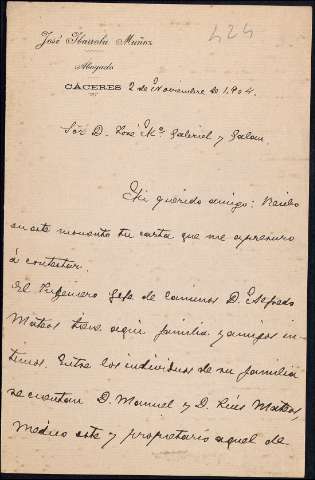 424
José Ibarrola Muñoz
Abogado
CÁCERES 2 de Noviembre de 1.904.
Sõr D. José Mª. Gabriel y Galan.
Mi querido amigo: Recibo
en este momento tu carta que me apresuro
á contestar.
El Ingeniero Gefe de Caminos D. Alfredo
Mateos tiene aqui familia y amigos in-
timos. Entre los individuos de su familia
se cuentan D. Manuel y D. Luis Mateos,
Medico este y propietario aquel de